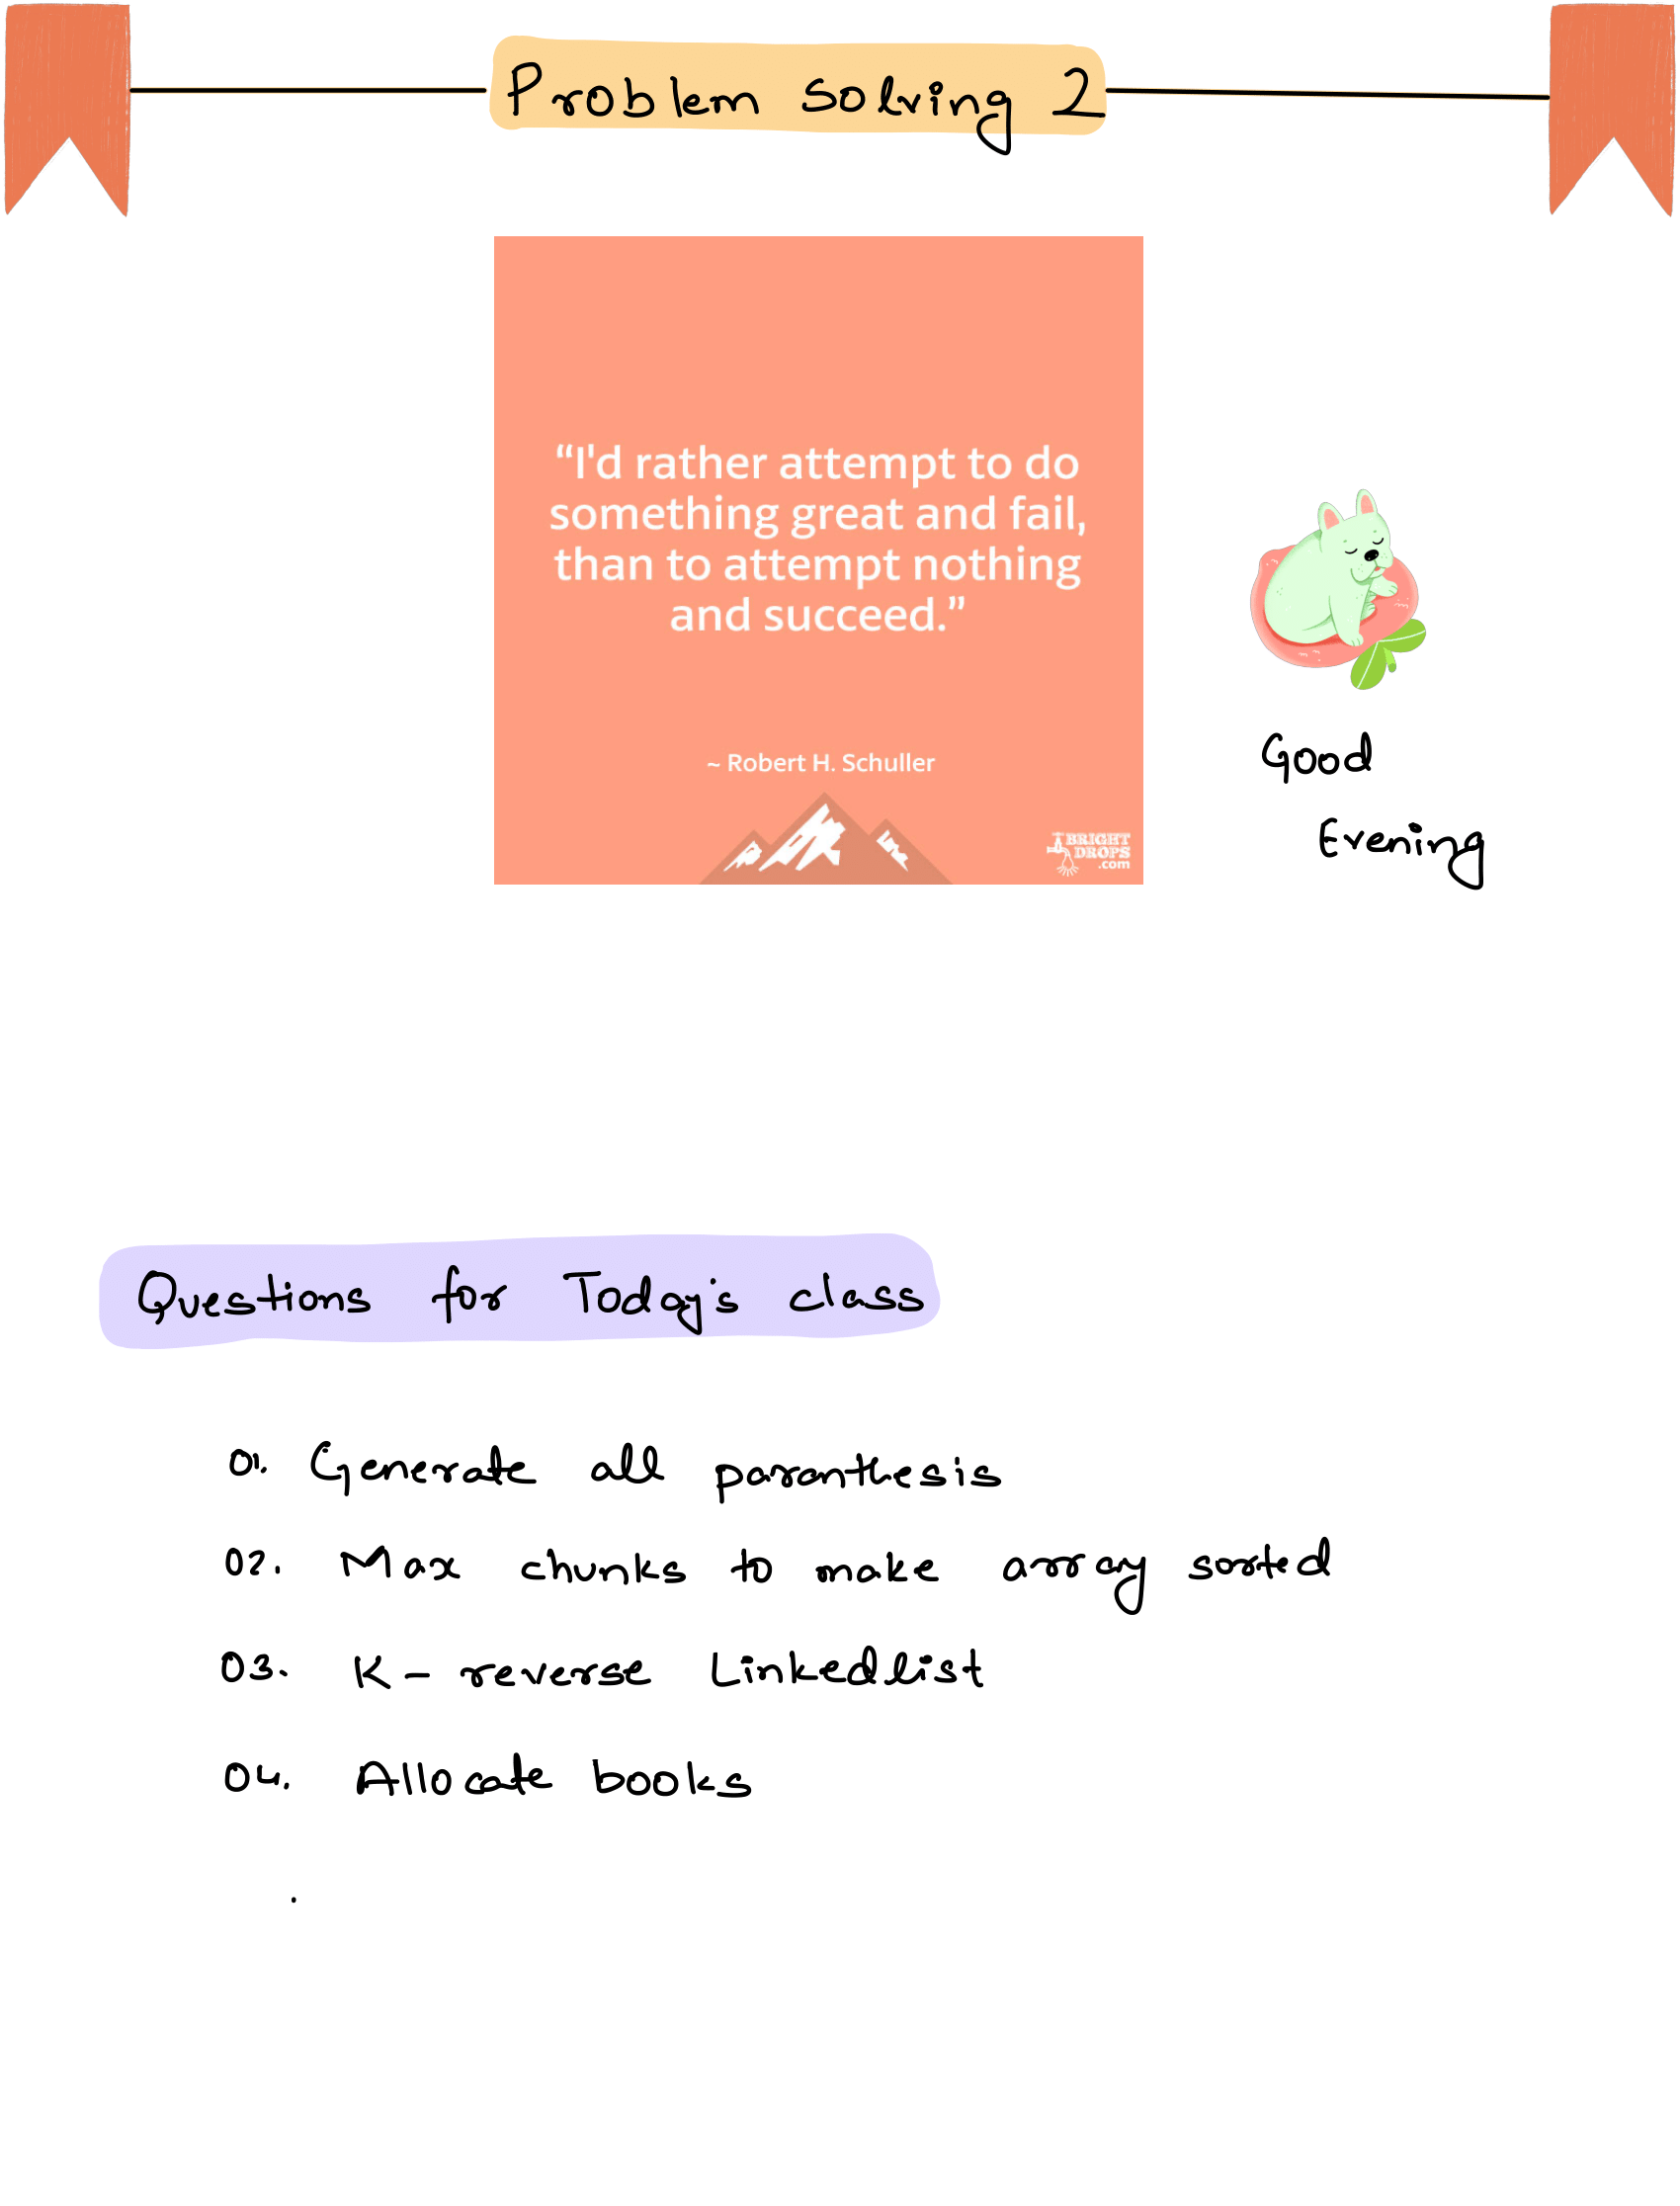 Problem Solving 2
“I'd rather attempt to do
something great and fail,
than to attempt nothing
and succeed.”
~ Robert H. Schuller
BRIGHT
DROPS
.com
Good
Evening
Questions for Today's class
01. Generate all paranthesis
02. Max chunks to make array sorted
03. K- reverse Linkedlist
04. Allocate books